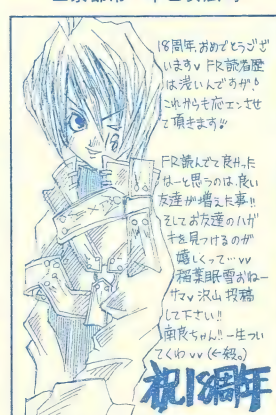 18周年、おめでとうござ
います♥ FR読者歴
は浅いんですが、!
これからも応エンさせ
て頂きます!!
FR読んでて良かった
なーと思うのは、良い
友達が増えた事!!
そしてお友達のハガ
キを見つけるのが
嬉しくって…♥♥
稲葉眠雪おねー
サマ♥沢山投稿
して下さい!!
南良ちゃん!!一生つい
てくわ♥♥(←殺。)
祝18周年